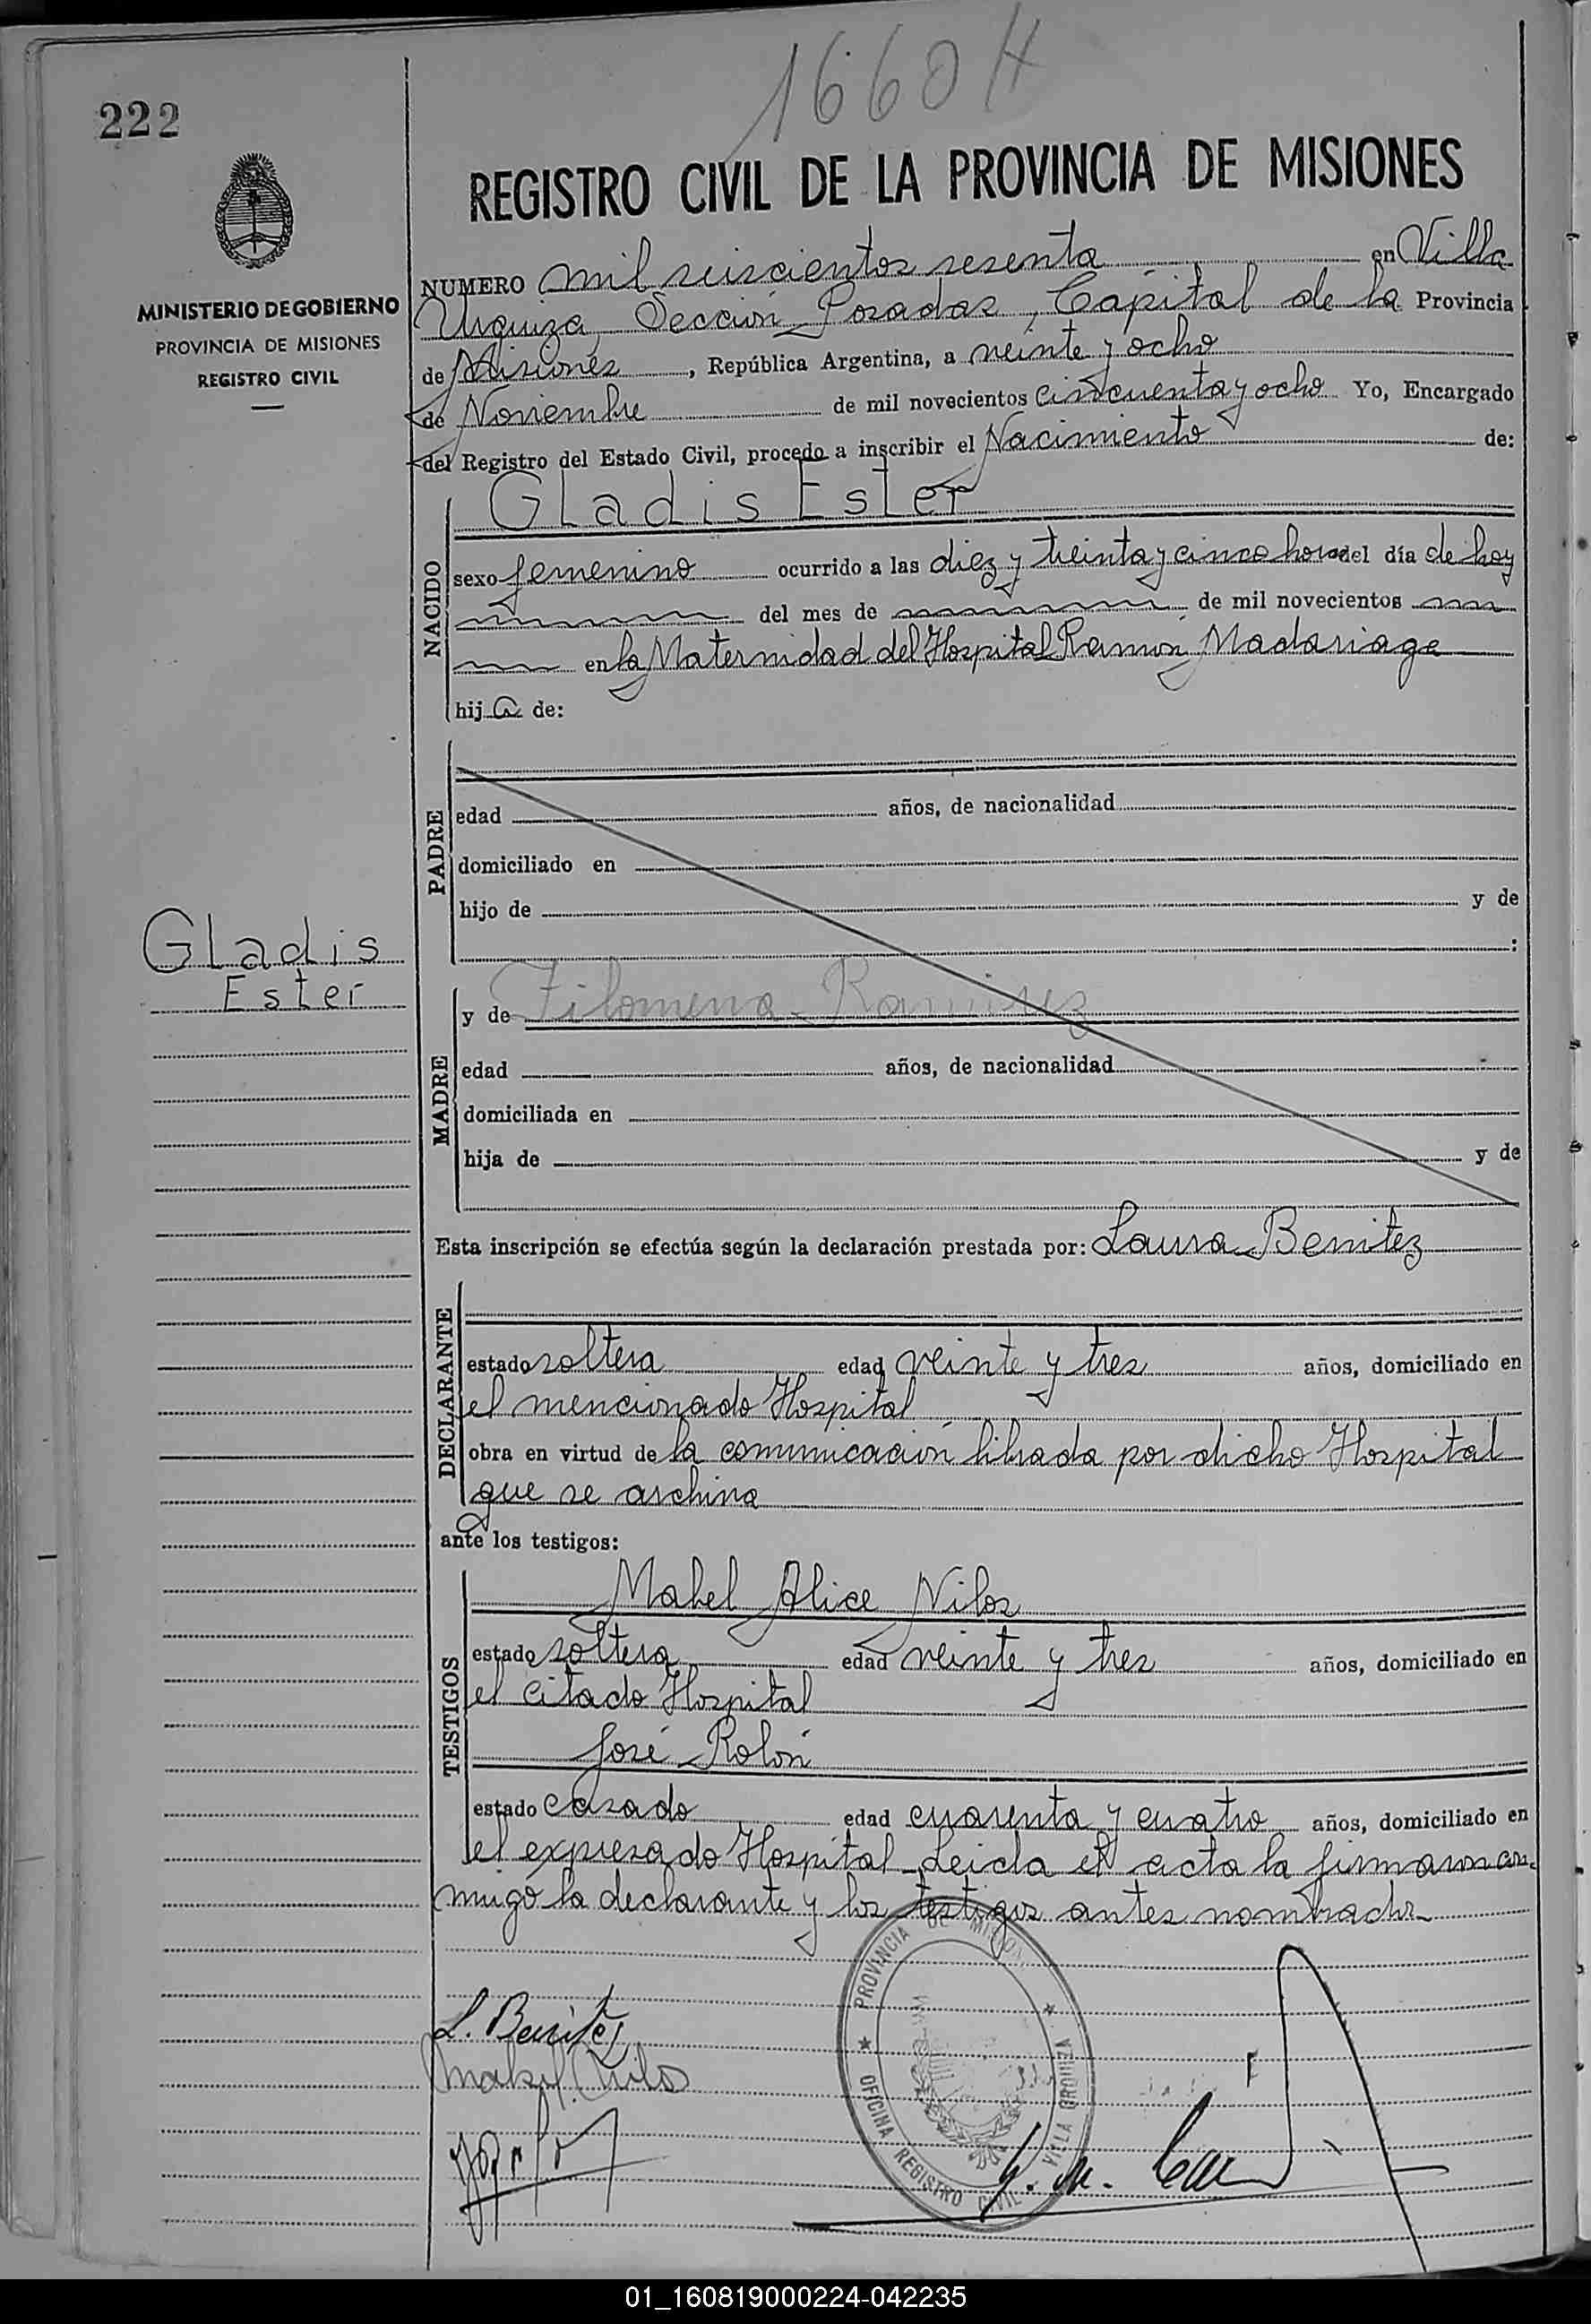 1660 H
222
REGISTRO CIVIL DE LA PROVINCIA DE MISIONES
MINISTERIO DE GOBIERNO
PROVINCIA DE MISIONES
REGISTRO CIVIL
NUMERO mil seiscientos sesenta en Villa
Urquiza, Sección Posadas, Capital de la Provincia
de Misiones, República Argentina, a veinte y ocho
de Noviembre de mil novecientos cincuenta y ocho Yo, Encargado
del Registro del Estado Civil, procedo a inscribir el Nacimiento de:
NACIDO
Gladis Ester
sexo femenino ocurrido a las diez y treinta y cinco horas del día de hoy
del mes de de mil novecientos
en la Maternidad del Hospital Ramón Madariaga
hij a de:
PADRE
edad años, de nacionalidad
domiciliado en
hijo de y de
:
Gladis
Ester
MADRE
y de Filomena Ramirez
edad años, de nacionalidad
domiciliada en
hija de y de
Esta inscripción se efectúa según la declaración prestada por: Laura Benitez
DECLARANTE
estado soltera edad veinte y tres años, domiciliado en
el mencionado Hospital
obra en virtud de la comunicación librada por dicho Hospital
que se archiva
ante los testigos:
TESTIGOS
Mabel Alice Nilos
estado soltera edad veinte y tres años, domiciliado en
el citado Hospital
José Rolón
estado casado edad cuarenta y cuatro años, domiciliado en
el expresado Hospital - Leida el acta la firmaron con-
migo la declarante y los testigos antes nombrados
L. Benitez
PROVINCIA DE MISIONES
OFICINA REGISTRO CIVIL
VILLA URQUIZA
01_160819000224-042235